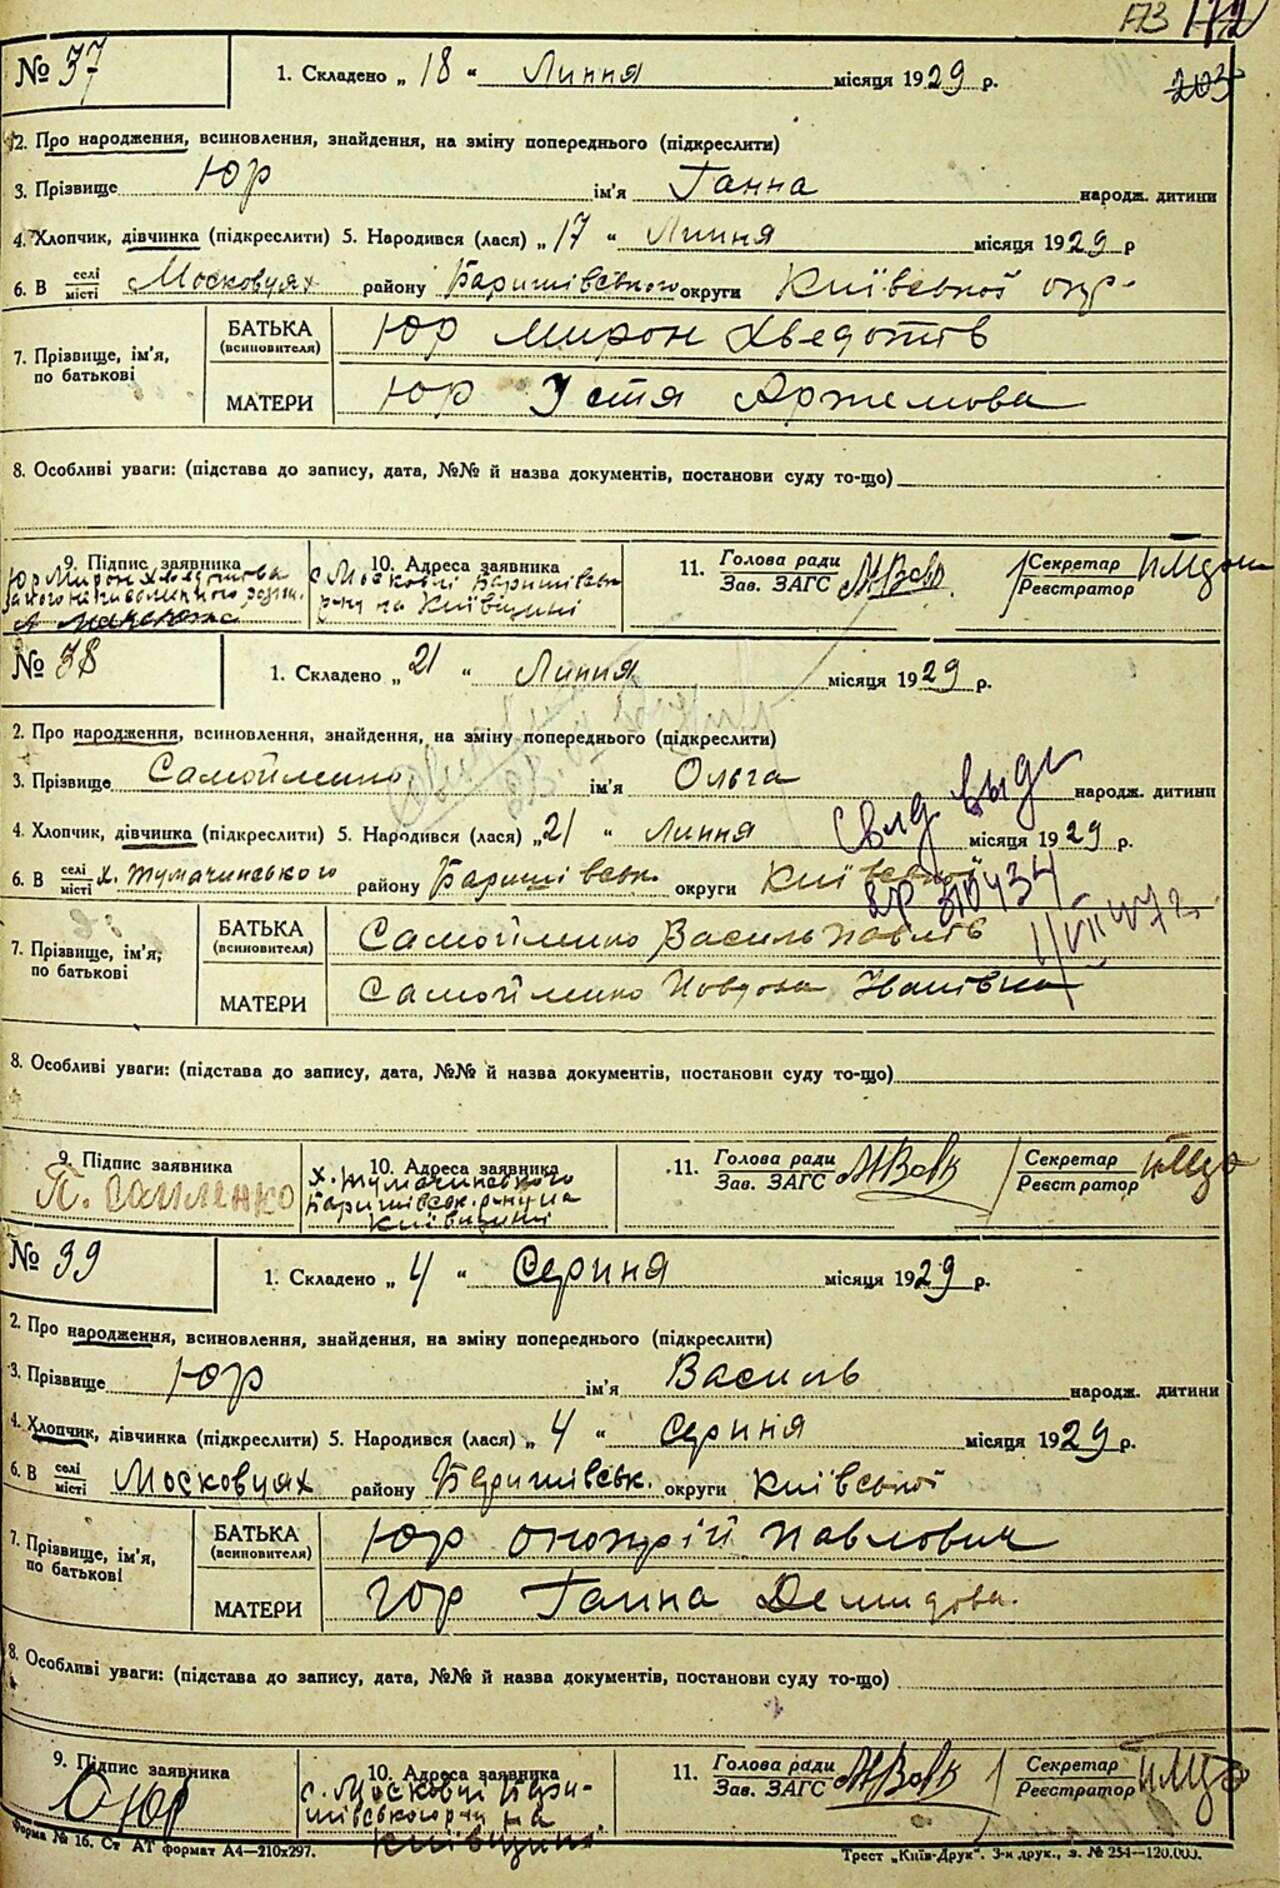 173
203
№ 37
1. Складено „ 18 “ Липня місяця 1929 р.
2. Про народження, всиновлення, знайдення, на зміну попереднього (підкреслити)
3. Прізвище Юр ім'я Ганна народж. дитини
4. Хлопчик, дівчинка (підкреслити) 5. Народився (лася) „ 17 “ Липня місяця 1929 р
6. В селі місті Московцях району Баришівського округи Київської окр.
7. Прізвище, ім'я, по батькові
БАТЬКА (всиновителя) Юр Мирон Хведотів
МАТЕРИ Юр Устя Артемова
8. Особливі уваги: (підстава до запису, дата, №№ й назва документів, постанови суду то-що)
9. Підпис заявника
Юр Мирон Хведотова
10. Адреса заявника
с. Московці Баришівськ
р-ну на Київщині
11. Голова ради
Зав. ЗАГС
МВовк
Секретар
Реєстратор
№ 38
1. Складено „ 21 “ Липня місяця 1929 р.
2. Про народження, всиновлення, знайдення, на зміну попереднього (підкреслити)
3. Прізвище Самойленко ім'я Ольга народж. дитини
Свид выд
4. Хлопчик, дівчинка (підкреслити) 5. Народився (лася) „ 21 “ Липня місяця 1929 р.
6. В селі місті х. Тумачинського району Баришівськ. округи Київської
310434
1/VII 47 г.
7. Прізвище, ім'я, по батькові
БАТЬКА (всиновителя) Самойленко Василь Павлів
МАТЕРИ Самойленко Іванівна
8. Особливі уваги: (підстава до запису, дата, №№ й назва документів, постанови суду то-що)
9. Підпис заявника
10. Адреса заявника
х. Тумачинського
Баришівськ. р-ну на
Київщині
11. Голова ради
Зав. ЗАГС
МВовк
Секретар
Реєстратор
№ 39
1. Складено „ 4 “ Серпня місяця 1929 р.
2. Про народження, всиновлення, знайдення, на зміну попереднього (підкреслити)
3. Прізвище Юр ім'я Василь народж. дитини
4. Хлопчик, дівчинка (підкреслити) 5. Народився (лася) „ 4 “ Серпня місяця 1929 р.
6. В селі місті Московцях району Баришівськ. округи Київської
7. Прізвище, ім'я, по батькові
БАТЬКА (всиновителя) Юр Онопрій Павлович
МАТЕРИ Юр Ганна Демидова.
8. Особливі уваги: (підстава до запису, дата, №№ й назва документів, постанови суду то-що)
9. Підпис заявника
О Юр
10. Адреса заявника
с. Московці Бари-
шівського р-ну на
Київщині.
11. Голова ради
Зав. ЗАГС
МВовк
Секретар
Реєстратор
Форма № 16. Ст АТ формат А4—210х297.
Трест „Київ-Друк“. 3-я друк., з. № 254—120.000.